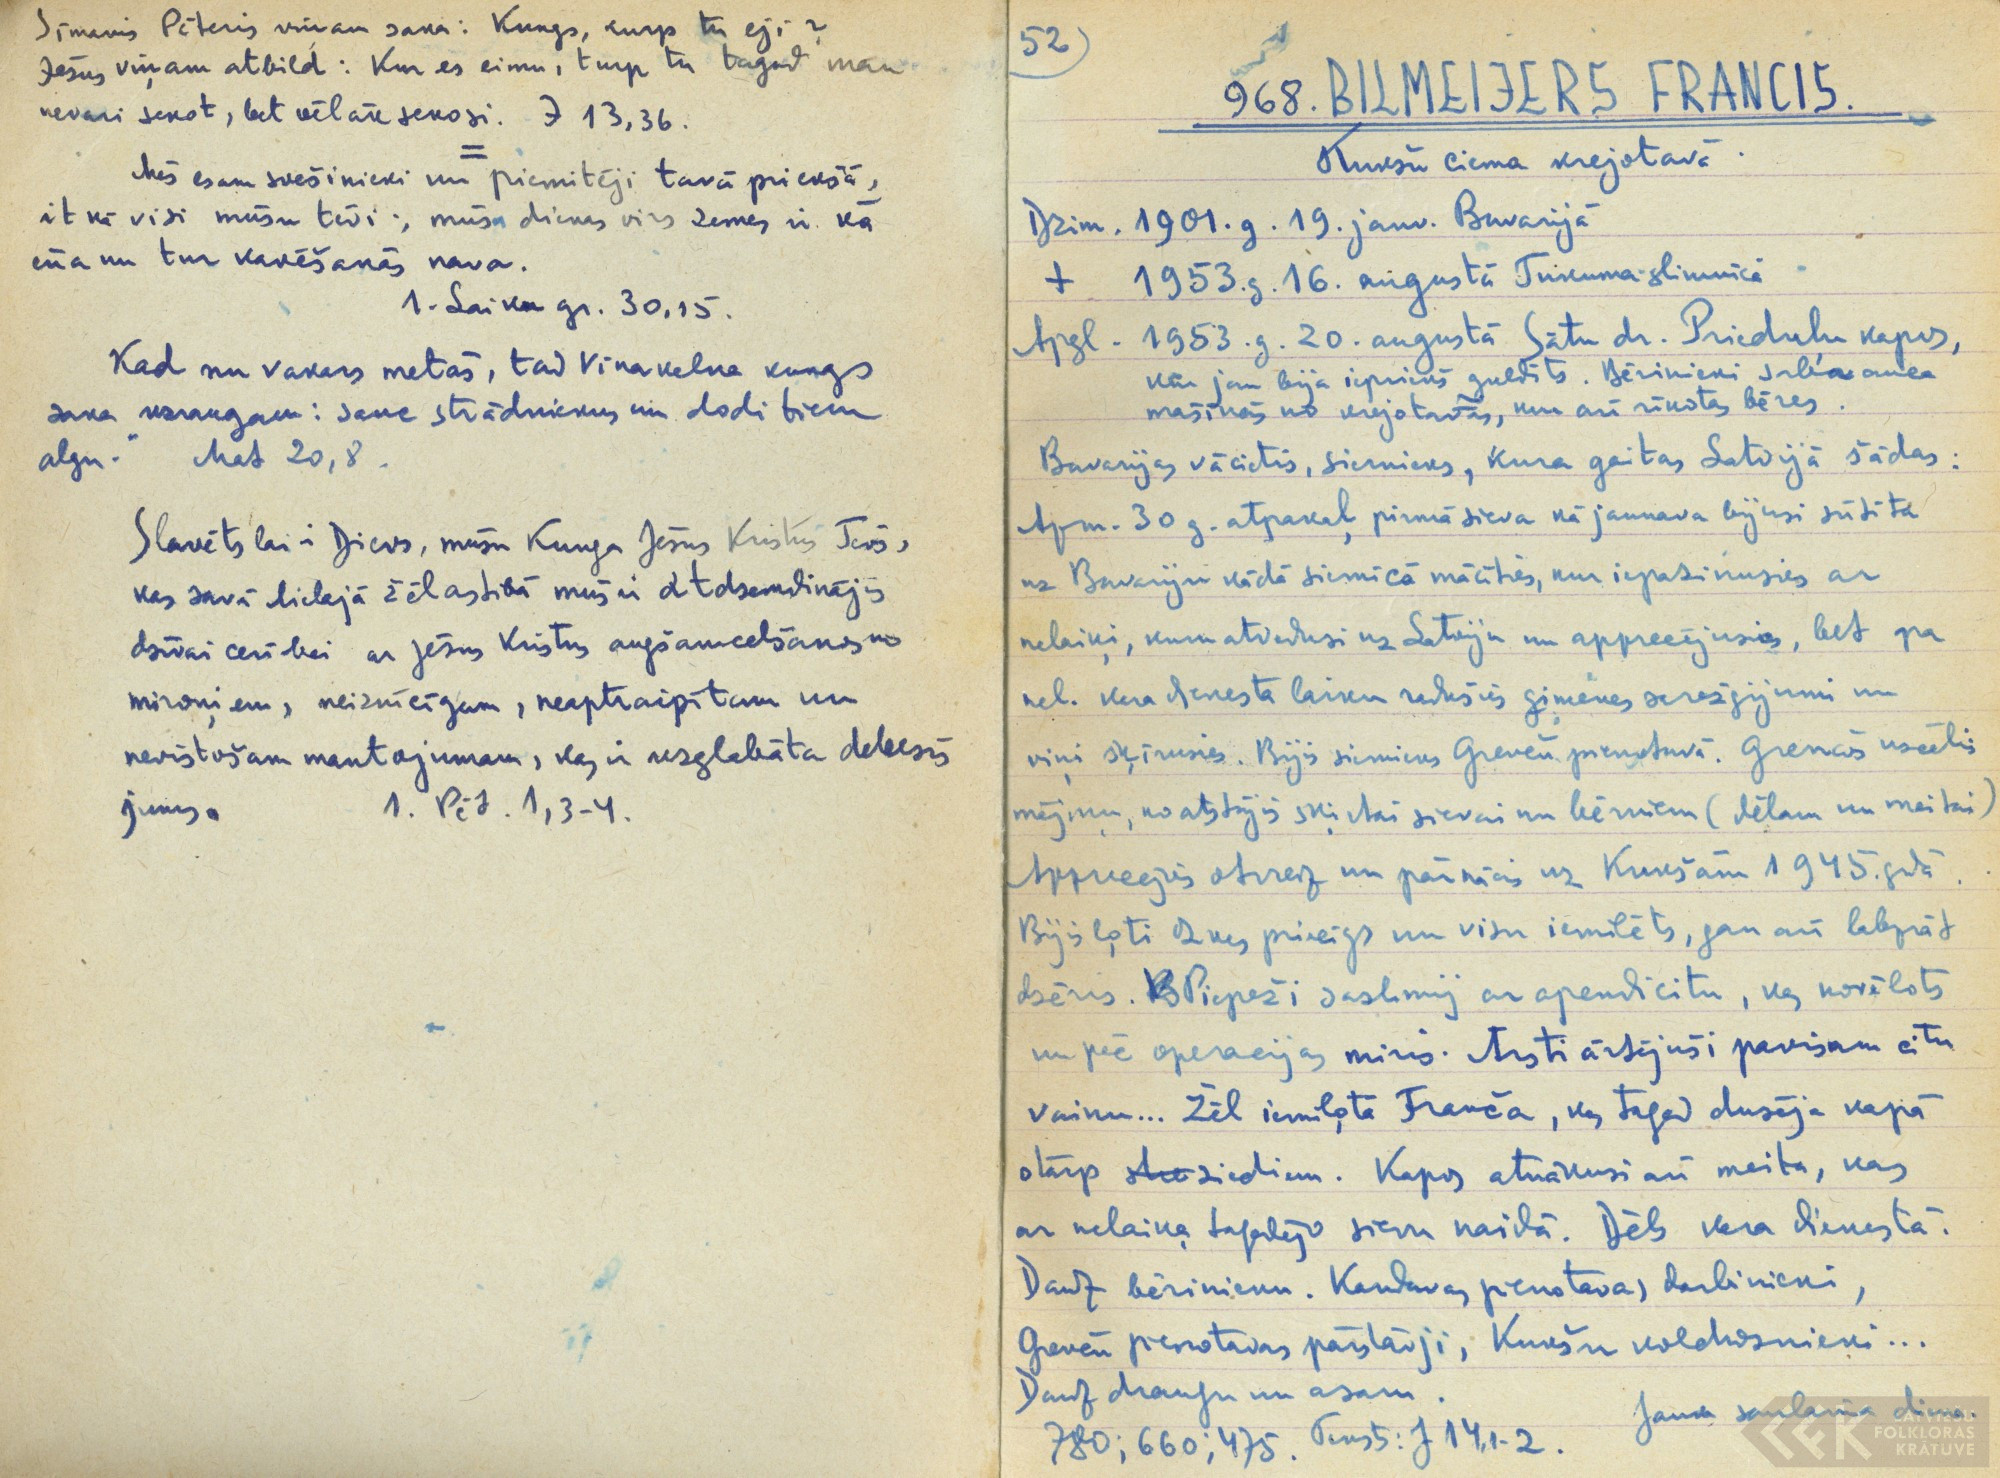 Sīmanis Pēteris viņam saka: Kungs, kurp tu eji?
Jēsus viņam atbild: Kur es eimu, turp tu tagad man
nevari sekot, bet vēlāk sekosi. J 13,36.
=
Mēs esam svešinieki un piemitēji tavā priekšā,
it kā visi mūsu tēvi; mūsu dienas virs zemes ir kā
ēna un tur kavēšanās nava.
1. Laiku gr. 30,15.
Kad nu vakars metās, tad Vīnakalna kungs
saka uzraugam: sauc strādniekus un dodi tiem
algu." Mat 20,8.
Slavēts lai i Dievs, mūsu Kunga Jēsus Kristus Tēvs,
kas savā lielajā žēlastībā mūs ir atdzemdinājis
dzīvai cerībai ar Jēsus Kristus augšamcelšanos no
miroņiem, neiznīcīgam, neaptraipītam un
nevīstošam mantojumam, kas ir uzglabāta debesīs
jums. 1. Pēt. 1,3-4.
52)
968. BILMEIJERS FRANCIS.
Kukšu ciema krejotavā.
Dzim. 1901. g. 19. janv. Bavarijā
+ 1953. g. 16. augustā Tukuma slimnīcā
Apgl. 1953. g. 20. augustā Sātu dr. Priedulu kapos,
kur jau bija iepriekš guldīts. Bērinieki
mašīnās no krejotavas, kur arī rīkotas bēres.
Bavarijas vācietis, siernieks, kura gaitas Latvijā šādas:
Apm. 30 g. atpakaļ pirmā sieva kā jaunava bijusi sūtīta
uz Bavariju kādā siernīcā mācīties, kur iepazinusies ar
nelaiķi, kuru atvedusi uz Latviju un apprecējusies, bet pa
nel. kara dienesta laiku radušies ģimenes sarežģījumi un
viņi šķīrušies. Bijis siernieks Grenču pienotavā. Grenčos uzcēlis
mājiņu, ko atstājis šķirtai sievai un bērniem (dēlam un meitai)
Apprecējies otrreiz un pārnācis uz Kukšām 1945. gadā.
Bijis ļoti dzīves priecīgs un visu iemīlēts, gan arī labprāt
dzēris. Piepeži saslimis ar apendicītu, kas novēlots
un pēc operācijas miris. Ārsti ārstējuši pavisam citu
vainu... Žēl iemīļotā Franča, kas tagad dusēja kapā
starp ziediem. Kapos atnākusi arī meita, kas
ar nelaiķa tagadējo sievu naidā. Dēls kara dienestā.
Daudz bērinieku. Kandavas pienotavas darbinieki,
Grenču pienotavas pārstāvji, Kukšu kolchoznieki...
Daudz draugu un asaru.
Jauka saulaina diena.
780; 660; 475. Teksts: J 14,1-2.
LATVIEŠU
FOLKLORAS
KRĀTUVE